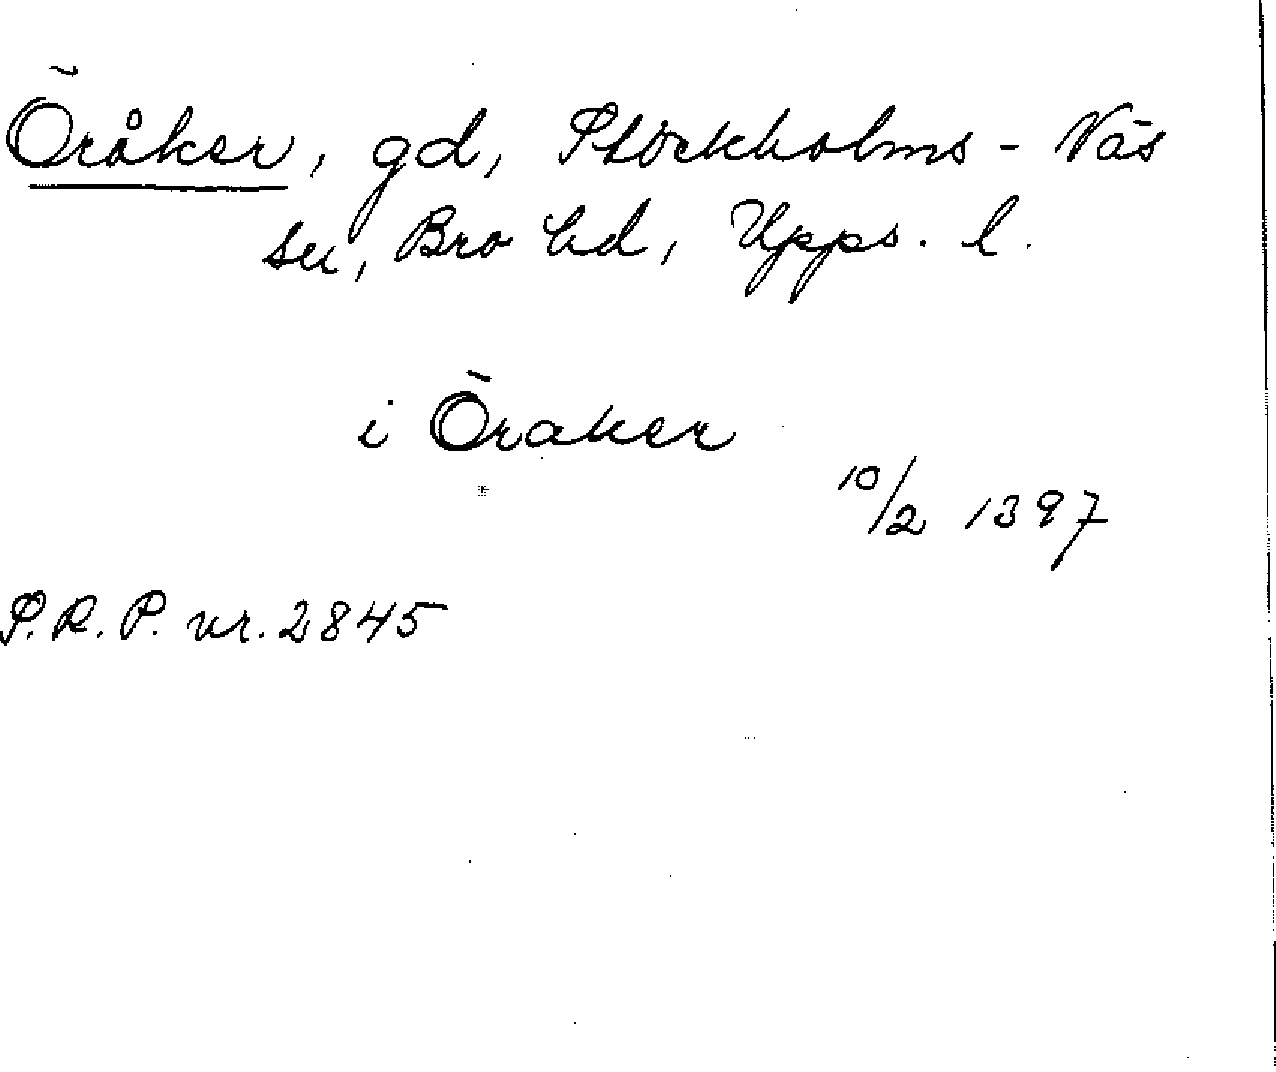 Öråker, gd, Stockholms-Näs
sn, Bro hd, Upps. l.
i Öraker
10/2 1397
S.R.P. nr. 2845